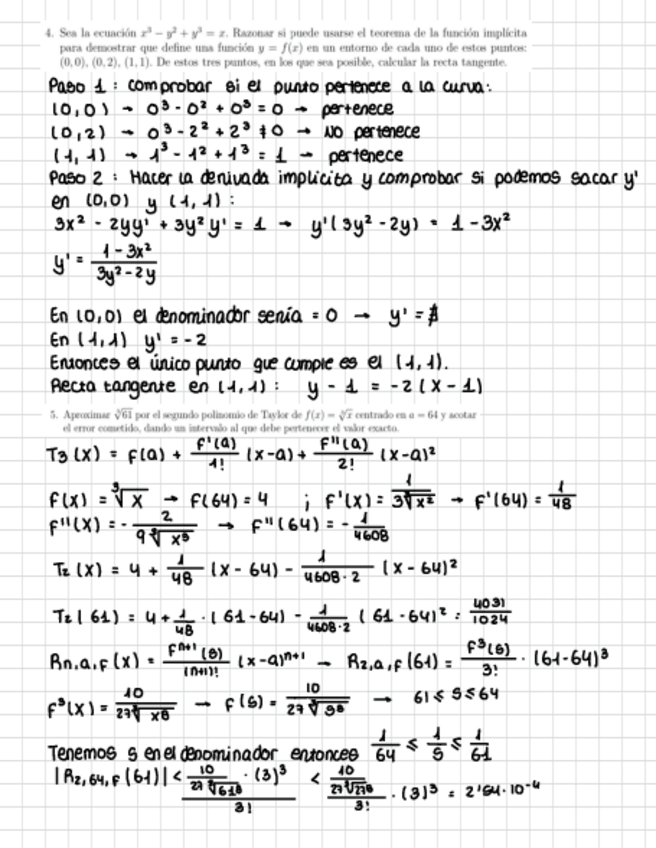 4. Sea la ecuación x³ − y² + y³ = x. Razonar si puede usarse el teorema de la función implícita
para demostrar que define una función y = f(x) en un entorno de cada uno de estos puntos:
(0,0), (0,2), (1,1). De estos tres puntos, en los que sea posible, calcular la recta tangente.
Paso 1: comprobar si el punto pertenece a la curva:
(0,0) → 0³ - 0² + 0³ = 0 → pertenece
(0,2) → 0³ - 2² + 2³ ≠ 0 → NO pertenece
(1,1) → 1³ - 1² + 1³ = 1 → pertenece
Paso 2: Hacer la derivada implícita y comprobar si podemos sacar y'
en (0,0) y (1,1):
3x² - 2yy' + 3y²y' = 1 → y'(3y² - 2y) = 1 - 3x²
y' = (1-3x²)/(3y²-2y)
En (0,0) el denominador sería = 0 → y' = ∄
En (1,1) y' = -2
Entonces el único punto que cumple es el (1,1).
Recta tangente en (1,1): y - 1 = -2(x-1)
5. Aproximar ∛61 por el segundo polinomio de Taylor de f(x) = ∛x centrado en a = 64 y acotar
el error cometido, dando un intervalo al que debe pertenecer el valor exacto.
T3(x) = f(a) + f'(a)/1! (x-a) + f''(a)/2! (x-a)²
f(x) = ∛x → f(64) = 4 ; f'(x) = 1/(3∛x²) → f'(64) = 1/48
f''(x) = - 2/(9∛x⁵) → f''(64) = - 1/4608
T2(x) = 4 + 1/48 (x-64) - 1/(4608·2) (x-64)²
T2(61) = 4 + 1/48 · (61-64) - 1/(4608·2) (61-64)² = 4031/1024
Rn,a,f(x) = fⁿ⁺¹(s)/(n+1)! (x-a)ⁿ⁺¹ → R2,a,f(61) = f³(s)/3! · (61-64)³
f³(x) = 10/(27∛x⁸) → f(s) = 10/(27∛s⁸) → 61 ≤ s ≤ 64
Tenemos s en el denominador entonces 1/64 ≤ 1/s ≤ 1/61
|R2,64,f(61)| < (10/(27∛61⁸))/3! · (3)³ < (10/(27∛27⁸))/3! · (3)³ = 2'54·10⁻⁴